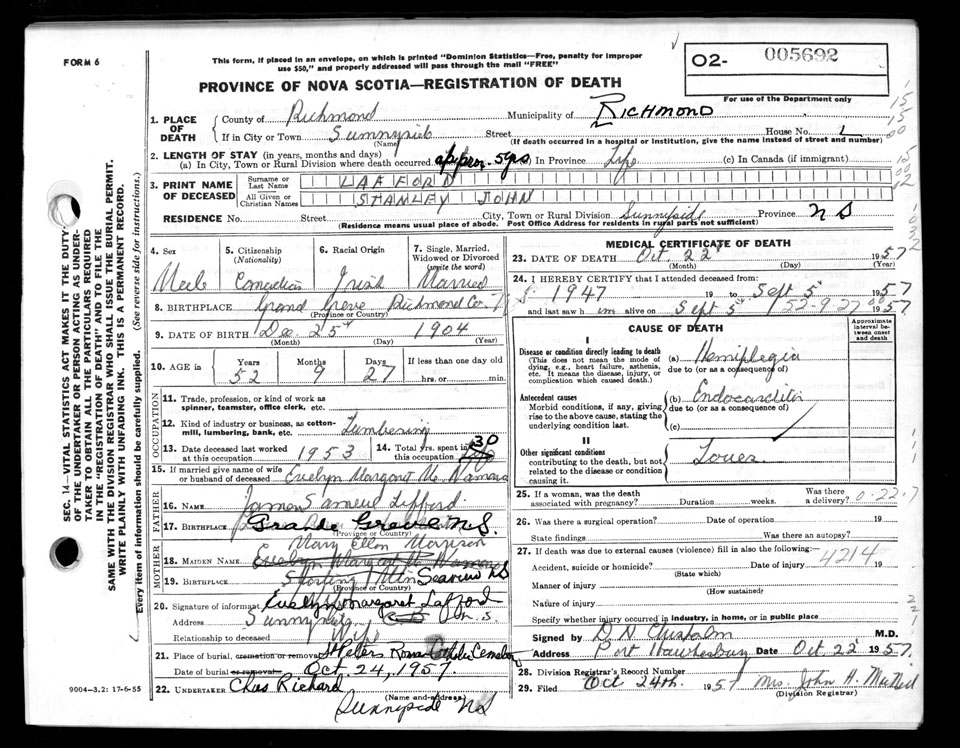 FORM 6
This form, if placed in an envelope, on which is printed "Dominion Statistics—Free, penalty for improper
use $50," and properly addressed will pass through the mail "FREE"
O2- 005692
For use of the Department only
PROVINCE OF NOVA SCOTIA—REGISTRATION OF DEATH
1. PLACE OF DEATH
County of Richmond Municipality of RICHMOND
If in City or Town Street House No.
(Name) (If death occurred in a hospital or institution, give the name instead of street and number)
2. LENGTH OF STAY (in years, months and days)
(a) In City, Town or Rural Division where death occurred approx. 5 yrs (b) In Province Life (c) In Canada (if immigrant)
3. PRINT NAME OF DECEASED
Surname or Last Name LAFFORD
All Given or Christian Names STANLEY JOHN
RESIDENCE No. Street City, Town or Rural Division Sunnyside Province N S
(Residence means usual place of abode. Post Office Address for residents in rural parts not sufficient)
4. Sex
Male
5. Citizenship
(Nationality)
Canadian
6. Racial Origin
Irish
7. Single, Married, Widowed or Divorced
(write the word)
Married
8. BIRTHPLACE Grand Greve Richmond Co.
(Province or Country)
9. DATE OF BIRTH Dec. 25 1904
(Month) (Day) (Year)
10. AGE in Years Months Days If less than one day old
52 9 27 hrs. or min.
OCCUPATION
11. Trade, profession, or kind of work as
spinner, teamster, office clerk, etc.
12. Kind of industry or business, as cotton-
mill, lumbering, bank, etc. Lumbering
13. Date deceased last worked
at this occupation 1953
14. Total yrs. spent in
this occupation 30
15. If married give name of wife
or husband of deceased Evelyn Margaret McNamara
FATHER
16. NAME James Samuel Lafford
17. BIRTHPLACE Grande Greve N.S.
(Province or Country)
MOTHER
Mary Ellen Morrison
18. MAIDEN NAME Evelyn Margaret McNamara
19. BIRTHPLACE Sporting Mtn Seaview N S
(Province or Country)
20. Signature of informant Evelyn Margaret Lafford
Address Sunnyside N.S.
Relationship to deceased Wife
21. Place of burial, cremation or removal St Peters Roman Catholic Cemetery
Date of burial or removal Oct 24, 1957.
22. UNDERTAKER Chas Richard
(Name and address)
Sunnyside N S
9004—3.2: 17-6-55
MEDICAL CERTIFICATE OF DEATH
23. DATE OF DEATH Oct. 22 1957
(Month) (Day) (Year)
24. I HEREBY CERTIFY that I attended deceased from:
1947 19 to Sept 5 1957
and last saw him alive on Sept 5 1957
52-9-27
CAUSE OF DEATH
Approximate interval between onset and death
I
Disease or condition directly leading to death
(This does not mean the mode of
dying, e.g., heart failure, asthenia,
etc. It means the disease, injury, or
complication which caused death.)
(a) Hemiplegia
due to (or as a consequence of)
Antecedent causes
Morbid conditions, if any, giving
rise to the above cause, stating the
underlying condition last.
(b) Endocarditis
due to (or as a consequence of)
(c)
II
Other significant conditions
contributing to the death, but not
related to the disease or condition
causing it.
25. If a woman, was the death
associated with pregnancy? Duration weeks. Was there a delivery?
0-22-7
26. Was there a surgical operation? Date of operation 19
State findings Was there an autopsy?
27. If death was due to external causes (violence) fill in also the following:
Accident, suicide or homicide? Date of injury 19
4214
(State which)
Manner of injury
(How sustained)
Nature of injury
Specify whether injury occurred in industry, in home, or in public place
Signed by D N Chisholm M.D.
Address Port Hawkesbury Date Oct 22 1957.
28. Division Registrar's Record Number
29. Filed Oct 24th. 1957 Mrs. John H.
(Division Registrar)
SEC. 14—VITAL STATISTICS ACT MAKES IT THE DUTY
OF THE UNDERTAKER OR PERSON ACTING AS UNDER-
TAKER TO OBTAIN ALL THE PARTICULARS REQUIRED
IN THE "REGISTRATION OF DEATH" AND TO FILE THE
SAME WITH THE DIVISION REGISTRAR WHO SHALL ISSUE THE BURIAL PERMIT.
WRITE PLAINLY WITH UNFADING INK. THIS IS A PERMANENT RECORD.
Every item of information should be carefully supplied. (See reverse side for instructions.)